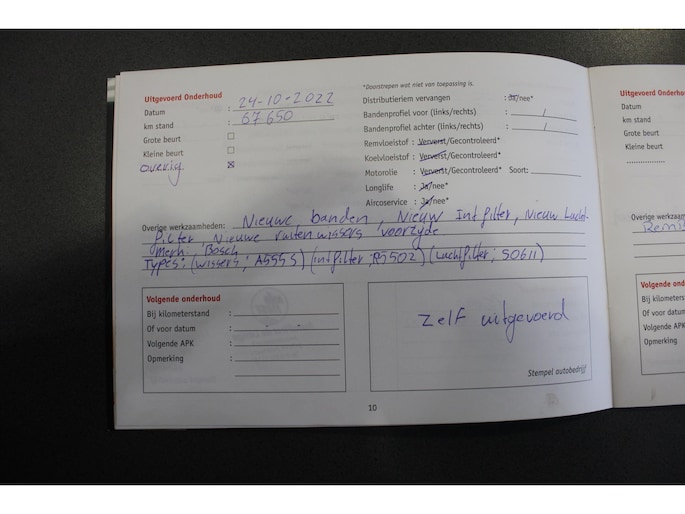 *Doorstrepen wat niet van toepassing is.
Uitgevoerd Onderhoud
Datum : 24-10-2022
km stand : 67650
Grote beurt :
Kleine beurt :
overig. : x
Distributieriem vervangen : Ja/nee*
Bandenprofiel voor (links/rechts) : /
Bandenprofiel achter (links/rechts) : /
Remvloeistof : Ververst/Gecontroleerd*
Koelvloeistof : Ververst/Gecontroleerd*
Motorolie : Ververst/Gecontroleerd* Soort:
Longlife : Ja/nee*
Aircoservice : Ja/nee*
Overige werkzaamheden: Nieuwe banden, Nieuw Intfilter, Nieuw Lucht-
filter Nieuwe ruiten wissers voorzyde
merk: Bosch
Types: (wissers; A555S) (intfilter; R5502) (Luchtfilter; S0611)
Volgende onderhoud
Bij kilometerstand :
Of voor datum : - -
Volgende APK :
Opmerking :
Zelf uitgevoerd
Stempel autobedrijf
10
Uitgevoerd Onderhou
Datum
km stand
Grote beurt
Kleine beurt
Overige werkzaam
Volgende ond
Bij kilometers
Of voor datum
Volgende APK
Opmerking